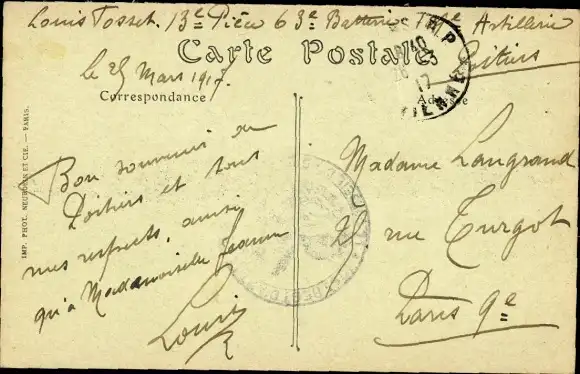 Louis Tosset. 13e Pièce 63e Batterie Artillerie
Poitiers
Carte Postale
le 25 Mars 1917.
Correspondance
Adresse
Bon souvenir de
Poitiers et tous
mes respects, ainsi
qu'à Mademoiselle Jeanne
Louis
Madame Langrand
25 rue Turgot
Paris 9e
IMP. PHOT. NEURDEIN ET CIE. — PARIS.
17
VIENNE